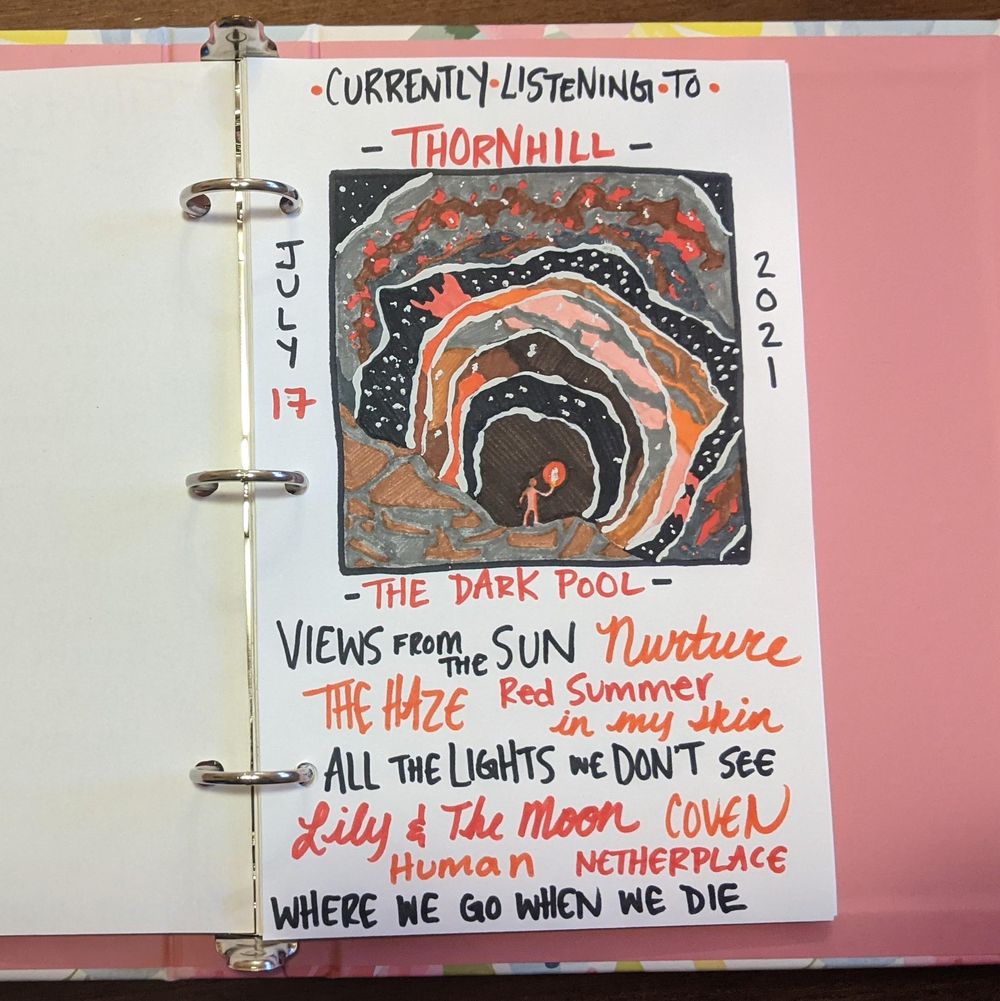 •CURRENTLY•LISTENING•TO•
- THORNHILL -
JULY
17
2021
- THE DARK POOL -
VIEWS FROM THE SUN Nurture
THE HAZE Red Summer
in my skin
ALL THE LIGHTS WE DON'T SEE
Lily & The Moon COVEN
Human NETHERPLACE
WHERE WE GO WHEN WE DIE